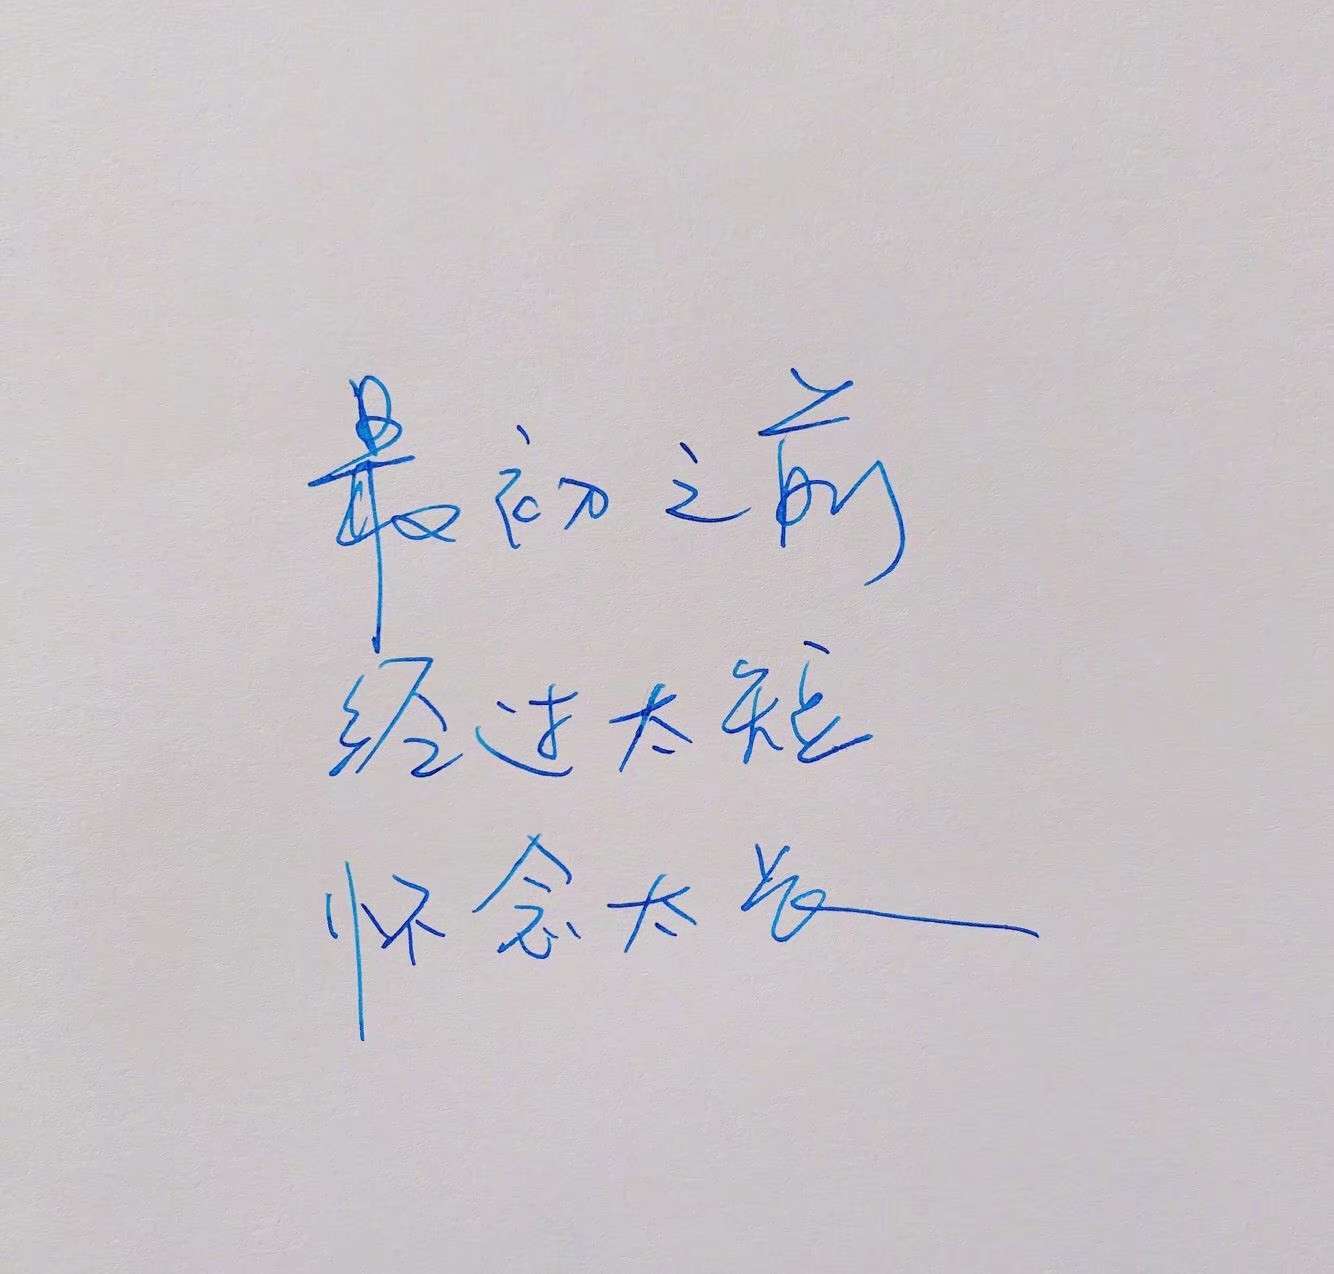 最初之前
经过太短
怀念太长